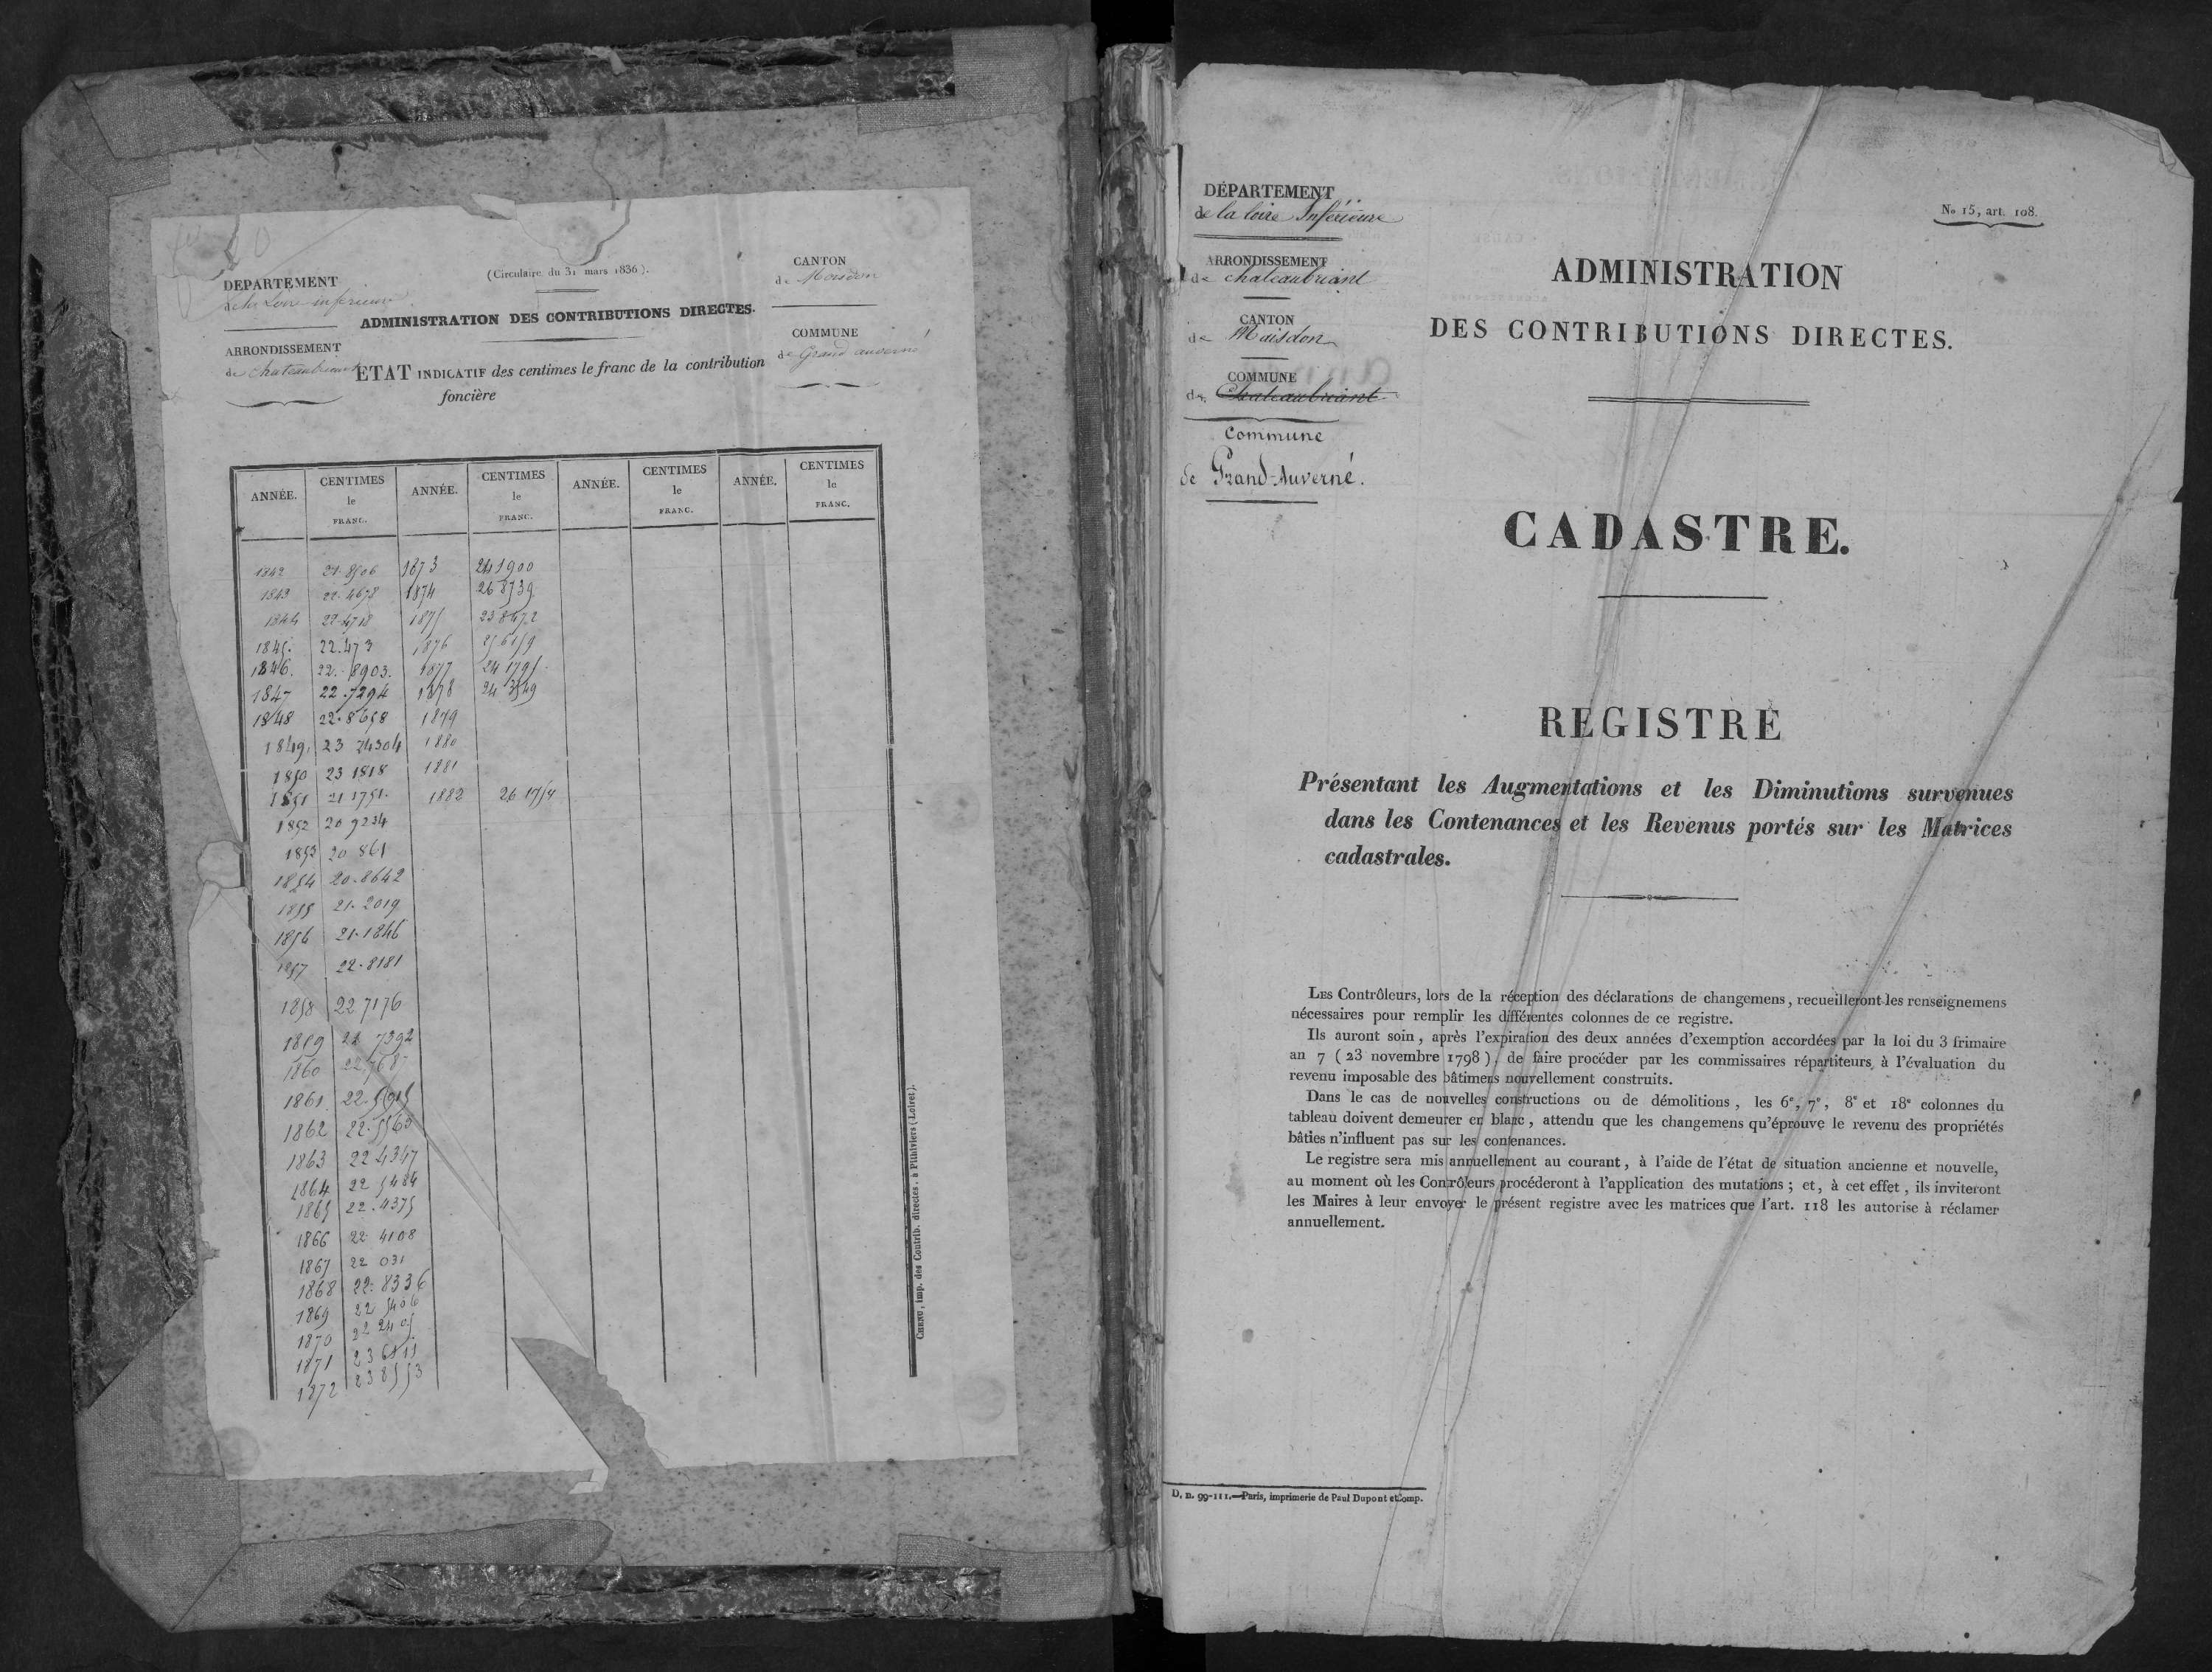 DÉPARTEMENT
de la Loire inférieure
ARRONDISSEMENT
de Chateaubriant
(Circulaire du 31 mars 1836).
ADMINISTRATION DES CONTRIBUTIONS DIRECTES.
ETAT INDICATIF des centimes le franc de la contribution
foncière
CANTON
de Moisdon
COMMUNE
de Grand auverné
ANNÉE. CENTIMES le FRANC. ANNÉE. CENTIMES le FRANC. ANNÉE. CENTIMES le FRANC. ANNÉE. CENTIMES le FRANC.
1842 21.8506 1873 24 1900
1843 22.4678 1874 26 8739
1844 22.4718 1875 23 8472
1845. 22.473 1876 25 6159
1846. 22.8903. 1877 24 1795
1847 22.7294 1878 24 3549
1848 22.8658 1879
1849 23 74304 1880
1850 23 1818 1881
1851 21 1751. 1882 26 1754
1852 20 9234
1853 20 861
1854 20.8642
1855 21.2019
1856 21.1846
1857 22.8181
1858 22 7176
1859 22 7392
1860 22.7687
1861 22.5915
1862 22.5563
1863 22 4347
1864 22 5484
1865 22.4375
1866 22 4108
1867 22 031
1868 22.8336
1869 22 5406
1870 22 2405
1871
1872 23 8553
CHENU, imp. des Contrib. directes, à Pithiviers (Loiret).
DÉPARTEMENT
de la Loire Inférieure
ARRONDISSEMENT
de chateaubriant
CANTON
de Maisdon
COMMUNE
de Chateaubriant
Commune
de Grand-Auverné.
No 15, art. 108.
ADMINISTRATION
DES CONTRIBUTIONS DIRECTES.
CADASTRE.
REGISTRE
Présentant les Augmentations et les Diminutions survenues
dans les Contenances et les Revenus portés sur les Matrices
cadastrales.
LES Contrôleurs, lors de la réception des déclarations de changemens, recueilleront les renseignemens
nécessaires pour remplir les différentes colonnes de ce registre.
Ils auront soin, après l'expiration des deux années d'exemption accordées par la loi du 3 frimaire
an 7 (23 novembre 1798), de faire procéder par les commissaires répartiteurs, à l'évaluation du
revenu imposable des bâtimens nouvellement construits.
Dans le cas de nouvelles constructions ou de démolitions, les 6e, 7e, 8e et 18e colonnes du
tableau doivent demeurer en blanc, attendu que les changemens qu'éprouve le revenu des propriétés
bâties n'influent pas sur les contenances.
Le registre sera mis annuellement au courant, à l'aide de l'état de situation ancienne et nouvelle,
au moment où les Contrôleurs procéderont à l'application des mutations; et, à cet effet, ils inviteront
les Maires à leur envoyer le présent registre avec les matrices que l'art. 118 les autorise à réclamer
annuellement.
D. n. 99-111.—Paris, imprimerie de Paul Dupont et Comp.